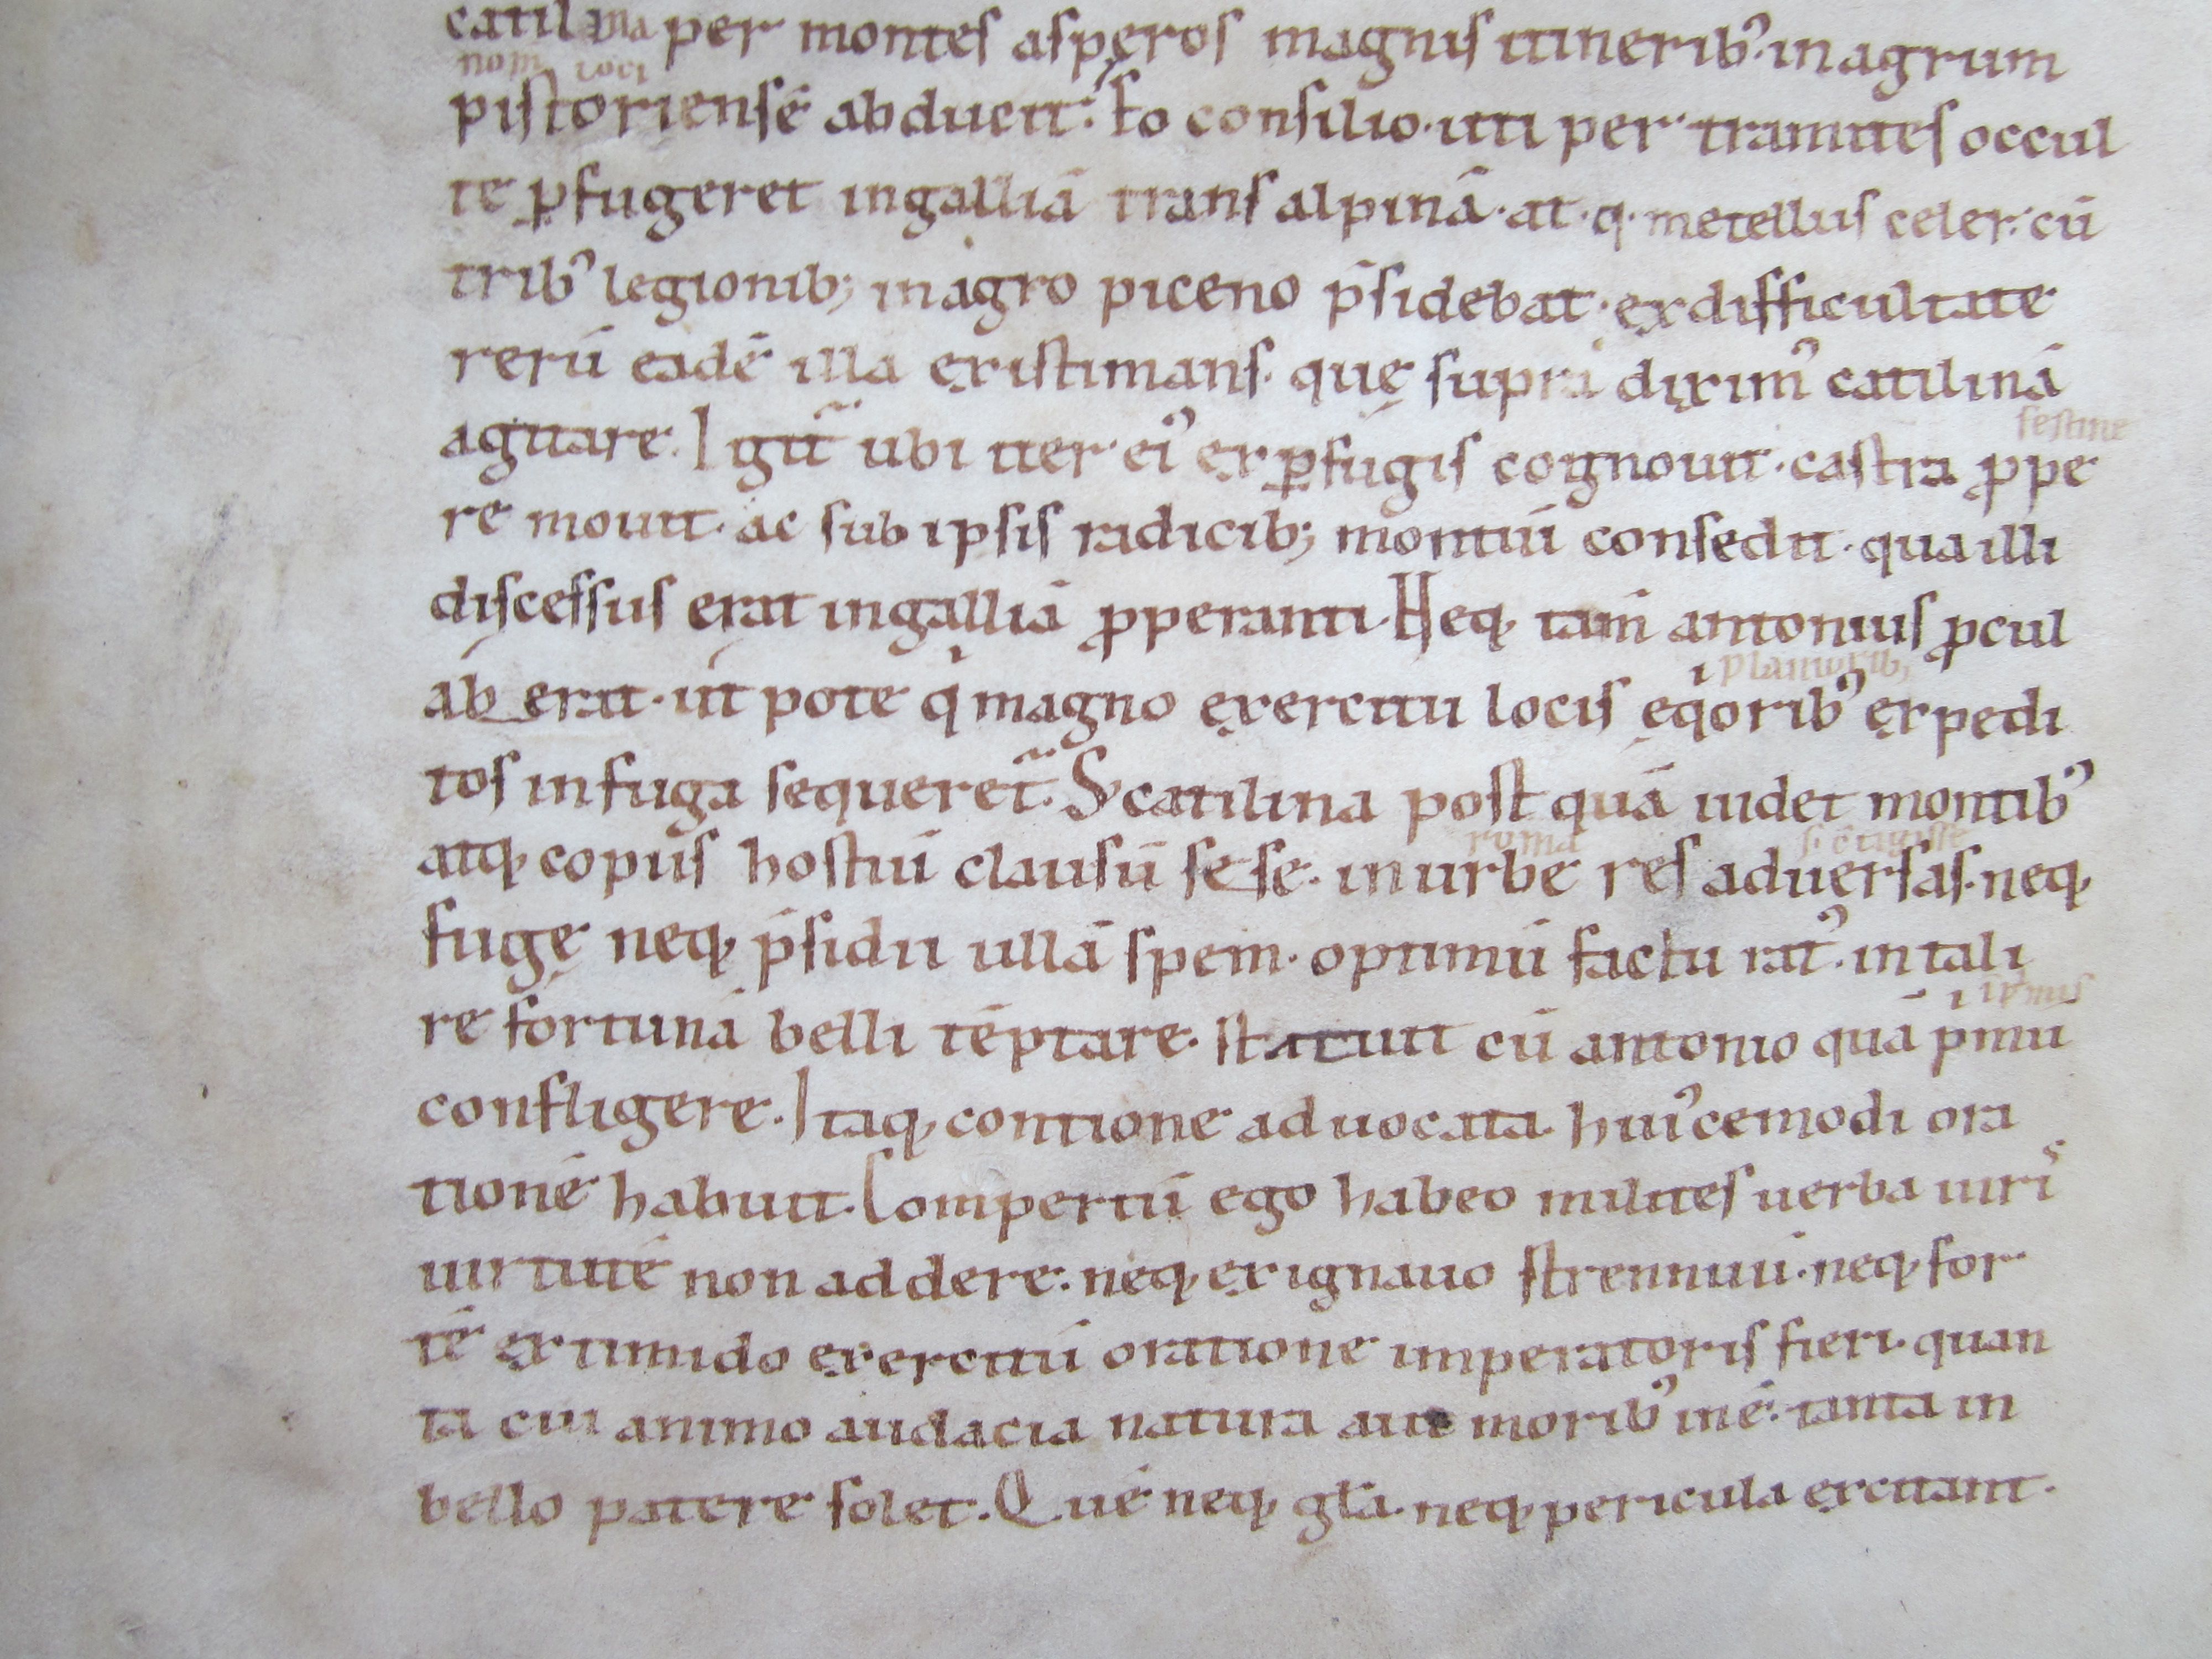 catilina per montes asperos magnis itinerib᾽ in agrum
nom̄ loci
pistoriensē abducit. Eo consilio. uti per tramites occul
te ꝑfugeret ingalliā transalpinā. at. q. metellus celer. cū
trib᾽ legionib; in agro piceno p̄sidebat. ex difficultate
rerū eadē illa existimans. quę supra dixim᾽ catilinā
festine
agitare. Igit᷑ ubi iter ei᾽ ex ꝑfugis cognouit. castra ꝓpe
re mouit. ac sub ipsis radicib; montiū consedit. qua illi
discessus erat ingalliā ꝓperanti. Neq, tam̄ antonius ꝓcul
planiorib;
ab erat. ut pote qi magno exercitu locis ęqiorib᾽ expedi
tos in fuga sequeret᷑. S; catilina post quā uidet montib᾽
roma
atq, copiis hostiū clausū sese. in urbe res aduersas. neq,
fugę neq, p̄sidii ullā spem. optimū factu rat᾽. in tali
re fortunā belli tēptare. statuit cū antonio quā pimū
confligere. Itaq, contione aduocata. hui᾽cemodi ora
tionē habuit. Compertū ego habeo milites uerba uiris
uirtutē non addere. neq, ex ignauo strennuū. neq, for
tē ex timido exercitū oratione imperatoris fieri. quan
ta cui animo audacia natura aut morib᾽ inē. tanta in
bello patere solet. Quē neq, gl̄a. neq, pericula excitant.